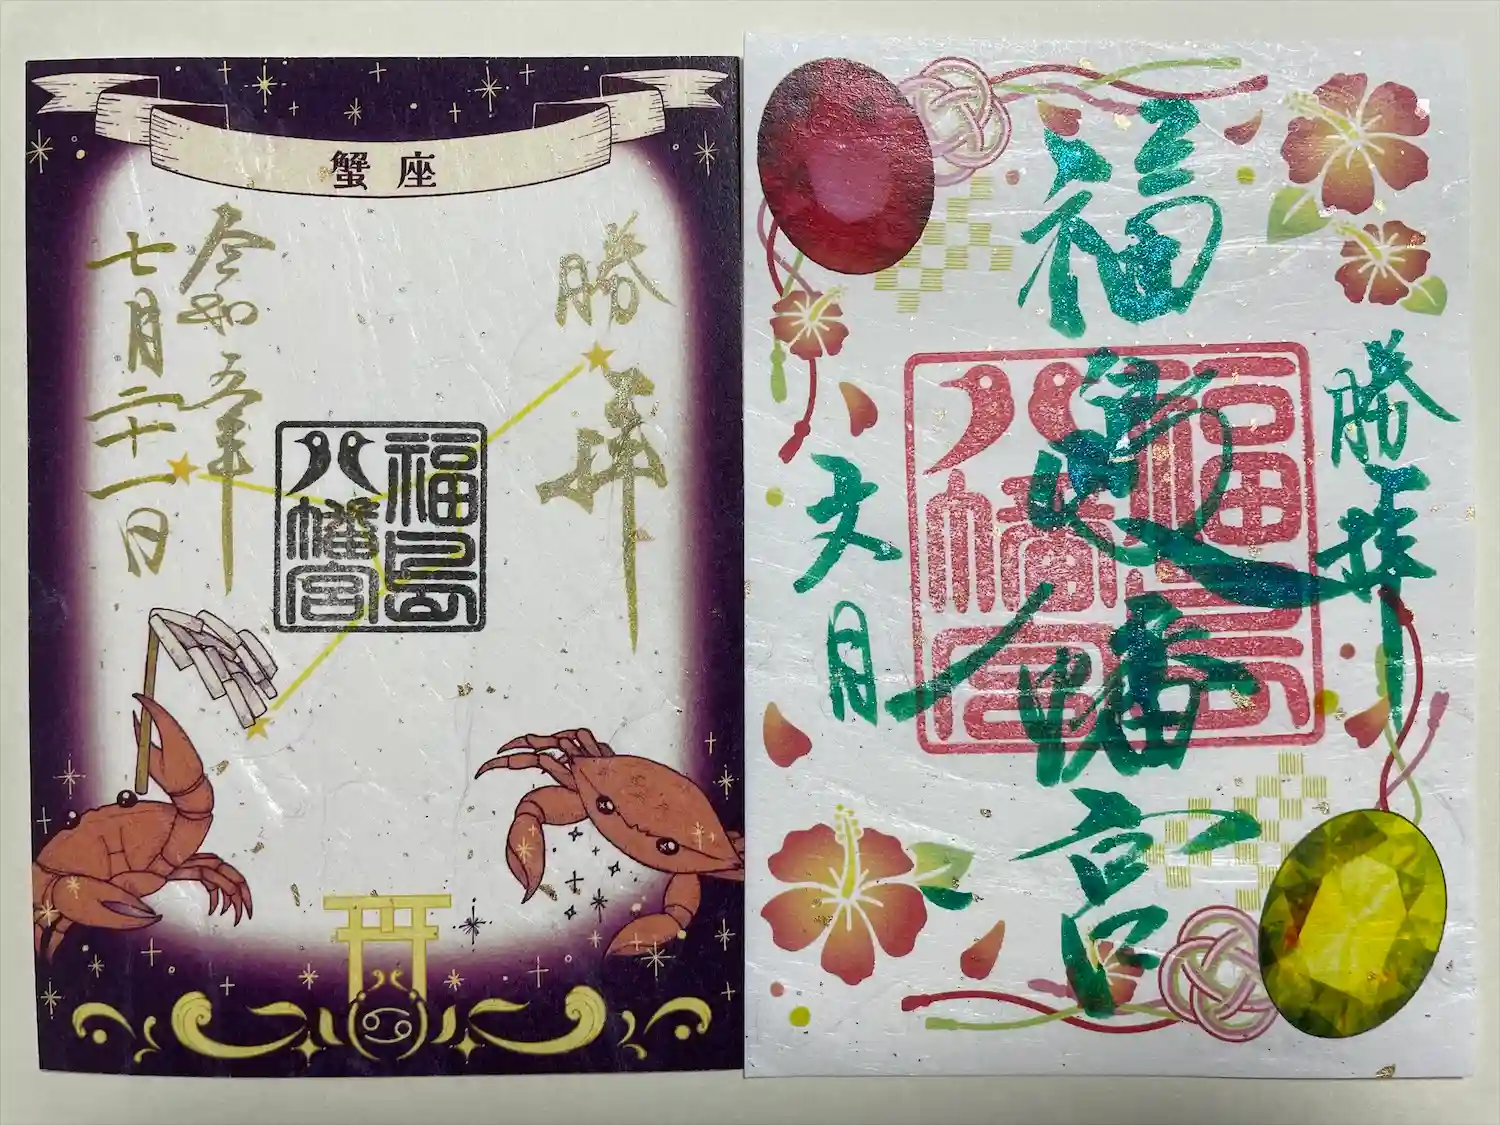 蟹座
勝拝
福島
八幡宮
令和五年
七月二十一日
勝拝
福島八幡宮
福島
八幡宮
文月